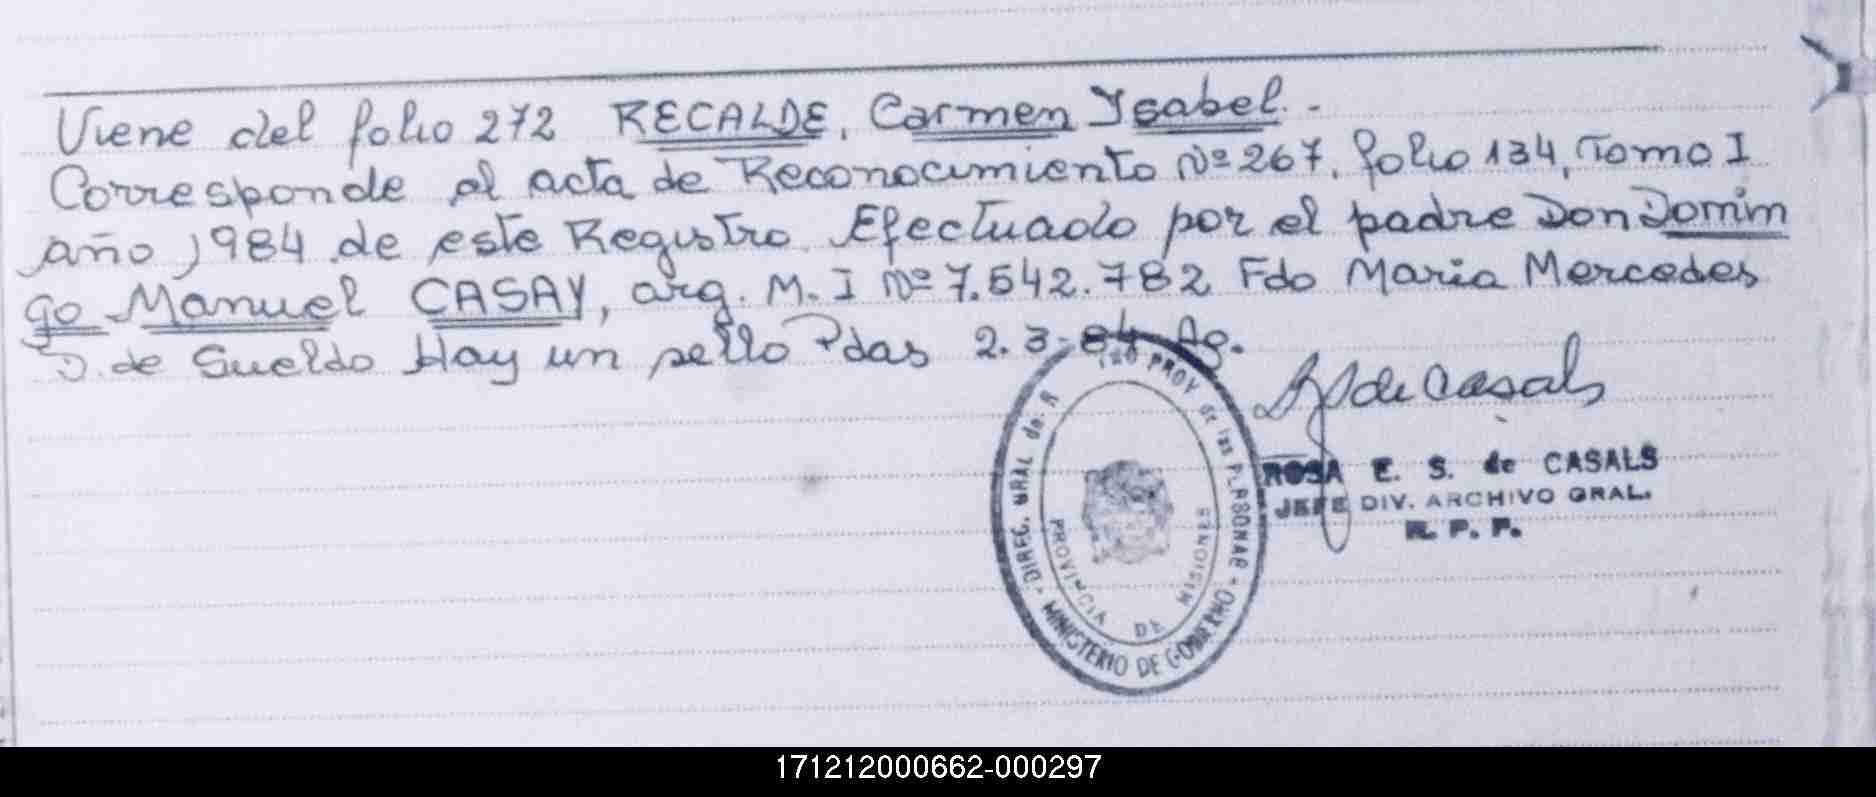 Viene del folio 272 RECALDE, Carmen Ysabel.-
Corresponde al acta de Reconocimiento Nº 267, folio 134, Tomo I
año 1984 de este Registro. Efectuado por el padre Don Domin
go Manuel CASAY, arg. M. I Nº 7.542.782 Fdo Maria Mercedes
D. de Sueldo Hay un sello Pdas 2.3.84 Ag.
de Casals
ROSA E. S. de CASALS
JEFE DIV. ARCHIVO GRAL.
R. P. P.
DIREC. GRAL de R PROV de las PERSONAS
PROVINCIA DE MISIONES
MINISTERIO DE GOBIERNO
171212000662-000297